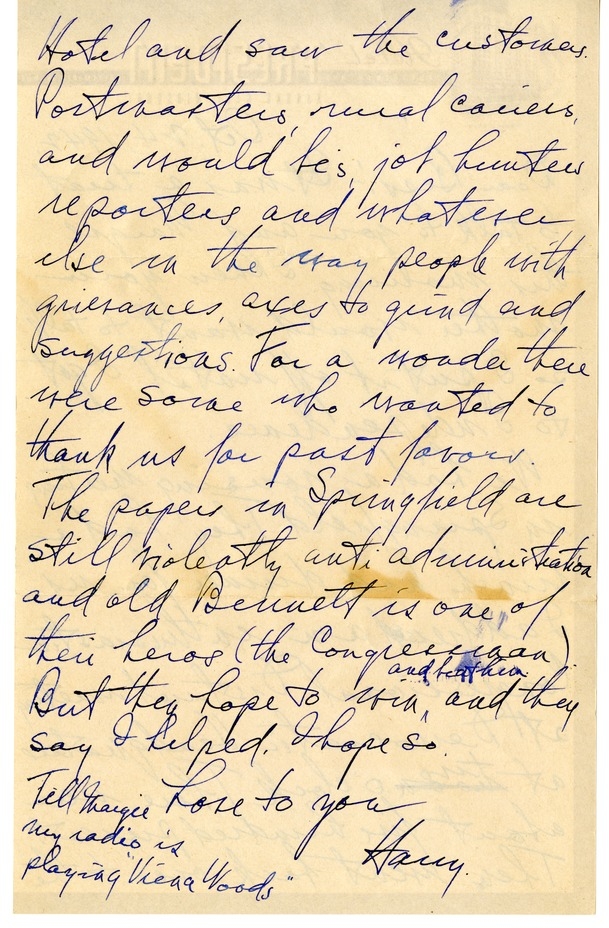 Hotel and saw the customers.
Postmasters, rural carriers,
and would be's, job hunters
reporters and whatever
else in the way people with
grievances, axes to grind and
suggestions. For a wonder there
were some who wanted to
thank us for past favors.
The papers in Springfield are
still violently anti administration
and old Bennett is one of
their heros (the Congressman)
But they hope to win, and beat him and they
say I helped. I hope so.
Love to you
Harry.
Tell Margie
my radio is
playing "Viena Woods"